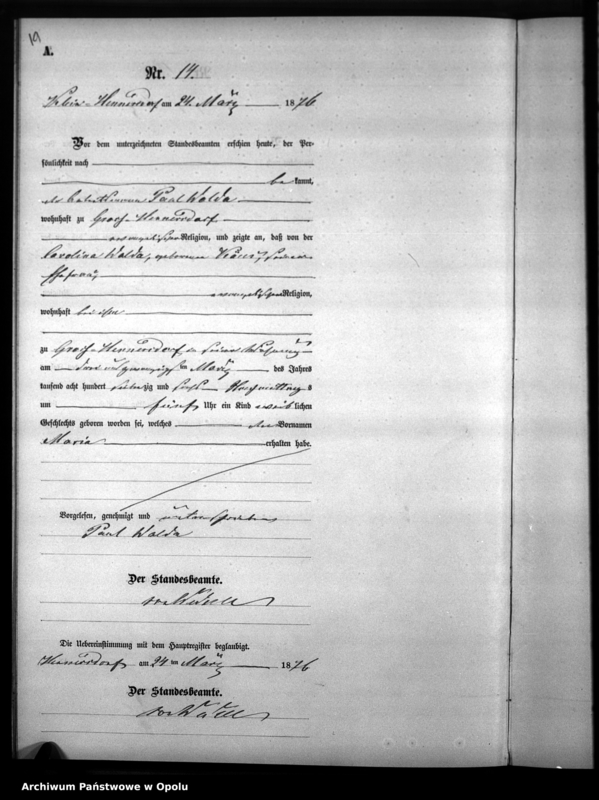 19
A.
Nr. 14.
Hennersdorf am 24 März 1876
Vor dem unterzeichneten Standesbeamten erschien heute, der Per-
sönlichkeit nach
be kannt,
Paul Walda
wohnhaft zu Groß-Hennersdorf
evangelischer Religion, und zeigte an, daß von der
Carolina Walda, geborenen seiner
Ehefrau,
evangelischer Religion,
wohnhaft bei ihm
zu Groß-Hennersdorf in seiner Wohnung
am drei und zwanzigsten März des Jahres
tausend acht hundert siebenzig und sechs Nachmittags
um fünf Uhr ein Kind weiblichen
Geschlechts geboren worden sei, welches den Vornamen
Maria erhalten habe.
Vorgelesen, genehmigt und unterschrieben
Paul Walda
Der Standesbeamte.
Die Uebereinstimmung mit dem Hauptregister beglaubigt.
Hennersdorf am 24ten März 1876
Der Standesbeamte.
Archiwum Państwowe w Opolu